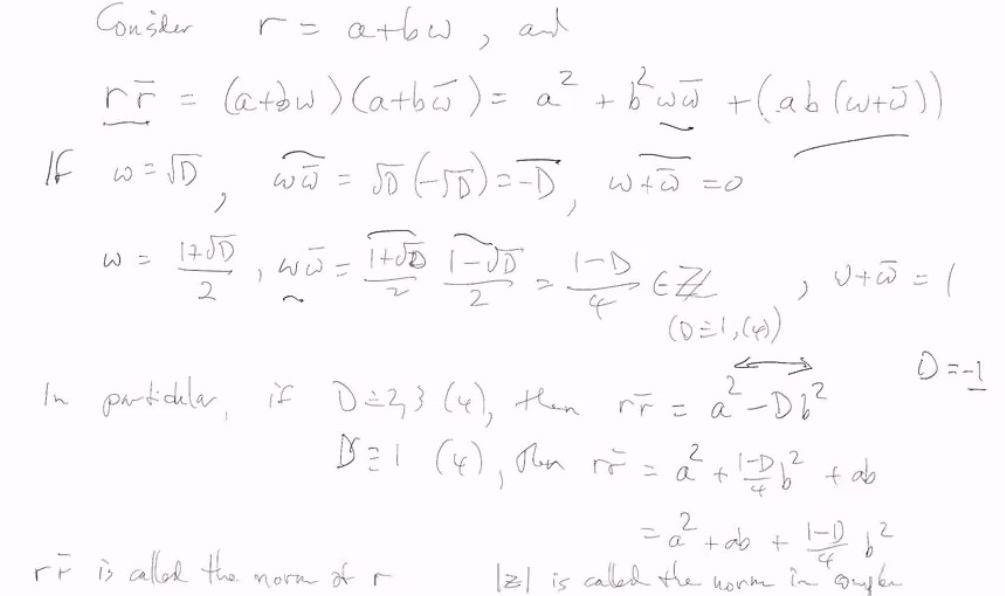 Consider r = a+bω, and
r r̄ = (a+bω)(a+bω̄) = a² + b²ωω̄ + (ab(ω+ω̄))
If ω = √D, ωω̄ = √D(-√D) = -D, ω+ω̄ = 0
ω = (1+√D)/2, ωω̄ = (1+√D)/2 (1-√D)/2 = (1-D)/4 ∈ ℤ, ω+ω̄ = 1
(D≡1,(4))
D = -1
In particular, if D≡2,3 (4), then r r̄ = a² - Db²
D≡1 (4), then r r̄ = a² + (1-D)/4 b² + ab
= a² + ab + (1-D)/4 b²
r r̄ is called the norm of r |z| is called the norm in complex